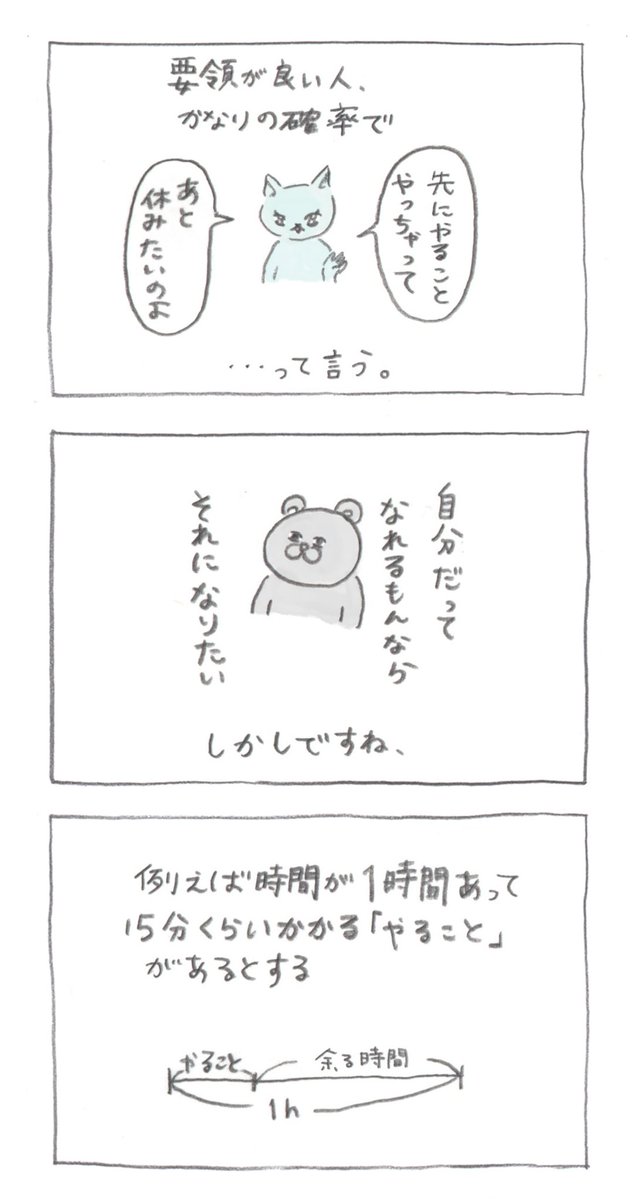 要領が良い人、
かなりの確率で
先にやること
やっちゃって
あと
休みたいのよ
…って言う。
自分だって
なれるもんなら
それになりたい
しかしですね、
例えば時間が1時間あって
15分くらいかかる「やること」
があるとする
やること
余る時間
1h